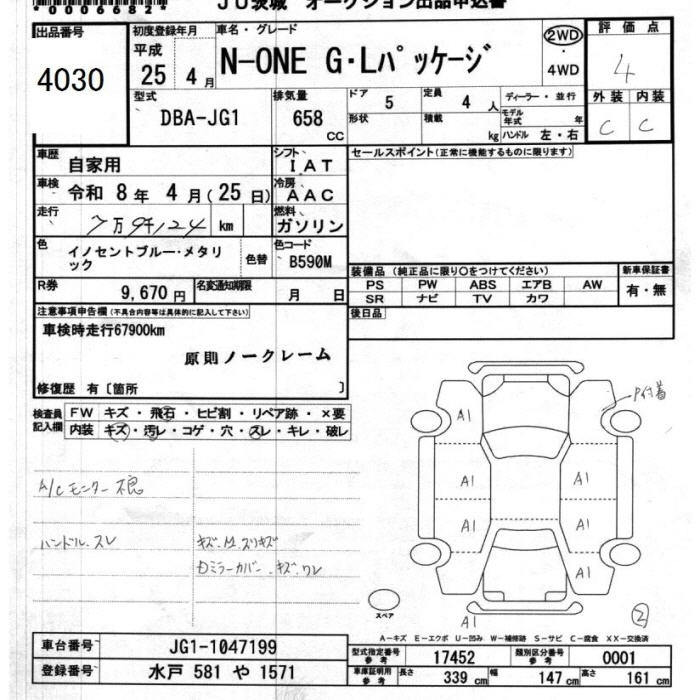 *0006682*
JU茨城 オークション出品申込書
出品番号
4030
初度登録年月
平成
25 4 月
車名・グレード
N-ONE G・Lパッケージ
2WD
・
4WD
評 価 点
4
外 装 内 装
C C
型式
DBA-JG1
排気量
658
CC
ドア
5
定員
4 人
ディーラー・並行
形状
積載
kg
モデル年式 年
ハンドル 左・右
車歴
自家用
シフト
I A T
セールスポイント(正常に機能するものに限ります)
車検
令和 8 年 4 月(25 日)
冷房
A A C
走行
7万9千124 km
燃料
ガソリン
色
イノセントブルー・メタリ
ック
色替
色コード
B590M
装備品(純正品に限り○をつけてください)
PS PW ABS エアB AW
SR ナビ TV カワ
新車保証書
有・無
R券
9,670 円
名変通知期限
月 日
後日品
注意事項申告欄(不具合内容等は具体的に記入して下さい)
車検時走行67900km
原則ノークレーム
修復歴 有〔箇所 〕
検査員
記入欄
FW キズ・飛石・ヒビ割・リペア跡・×要
内装 キズ・汚レ・コゲ・穴・スレ・キレ・破レ
A/Cモニター不良
ハンドル.スレ
キズ.A1.スリキズ
Dミラーカバー.キズ.ワレ
A1
P付着
A1 A1
A1 A1
A1
A1
スペア
②
A-キズ E-エクボ U-凹み W-補修跡 S-サビ C-腐食 XX-交換済
車台番号
JG1-1047199
登録番号
水戸 581 や 1571
型式指定番号
参考
17452
類別区分番号
参考
0001
車庫証明用
参考
長さ
339 cm
幅
147 cm
高さ
161 cm